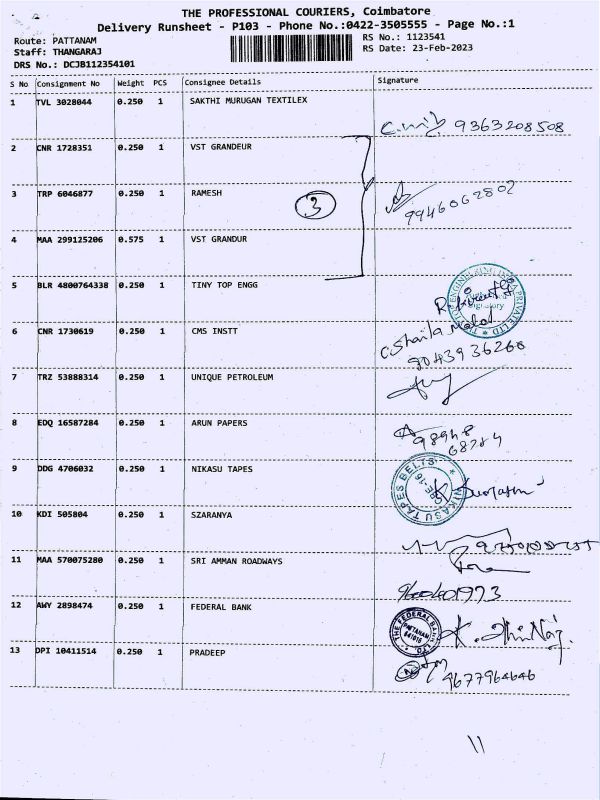 THE PROFESSIONAL COURIERS, Coimbatore
Delivery Runsheet - P103 - Phone No.:0422-3505555 - Page No.:1
Route: PATTANAM
RS No.: 1123541
Staff: THANGARAJ
RS Date: 23-Feb-2023
DRS No.: DCJB112354101
S No Consignment No Weight PCS Consignee Details Signature
1 TVL 3028044 0.250 1 SAKTHI MURUGAN TEXTILEX
9363208508
2 CNR 1728351 0.250 1 VST GRANDEUR
3 TRP 6046877 0.250 1 RAMESH
3
9946062802
4 MAA 299125206 0.575 1 VST GRANDUR
5 BLR 4800764338 0.250 1 TINY TOP ENGG
6 CNR 1730619 0.250 1 CMS INSTT
9043936260
7 TRZ 53888314 0.250 1 UNIQUE PETROLEUM
8 EDQ 16587284 0.250 1 ARUN PAPERS
98948
68784
9 DDG 4706032 0.250 1 NIKASU TAPES
NIKASU TAPES BELTS
CBE-16
10 KDI 505804 0.250 1 SZARANYA
11 MAA 570075280 0.250 1 SRI AMMAN ROADWAYS
12 AWY 2898474 0.250 1 FEDERAL BANK
THE FEDERAL BANK LTD.
PATTANAM
641016
13 DPI 10411514 0.250 1 PRADEEP
9677964646
11